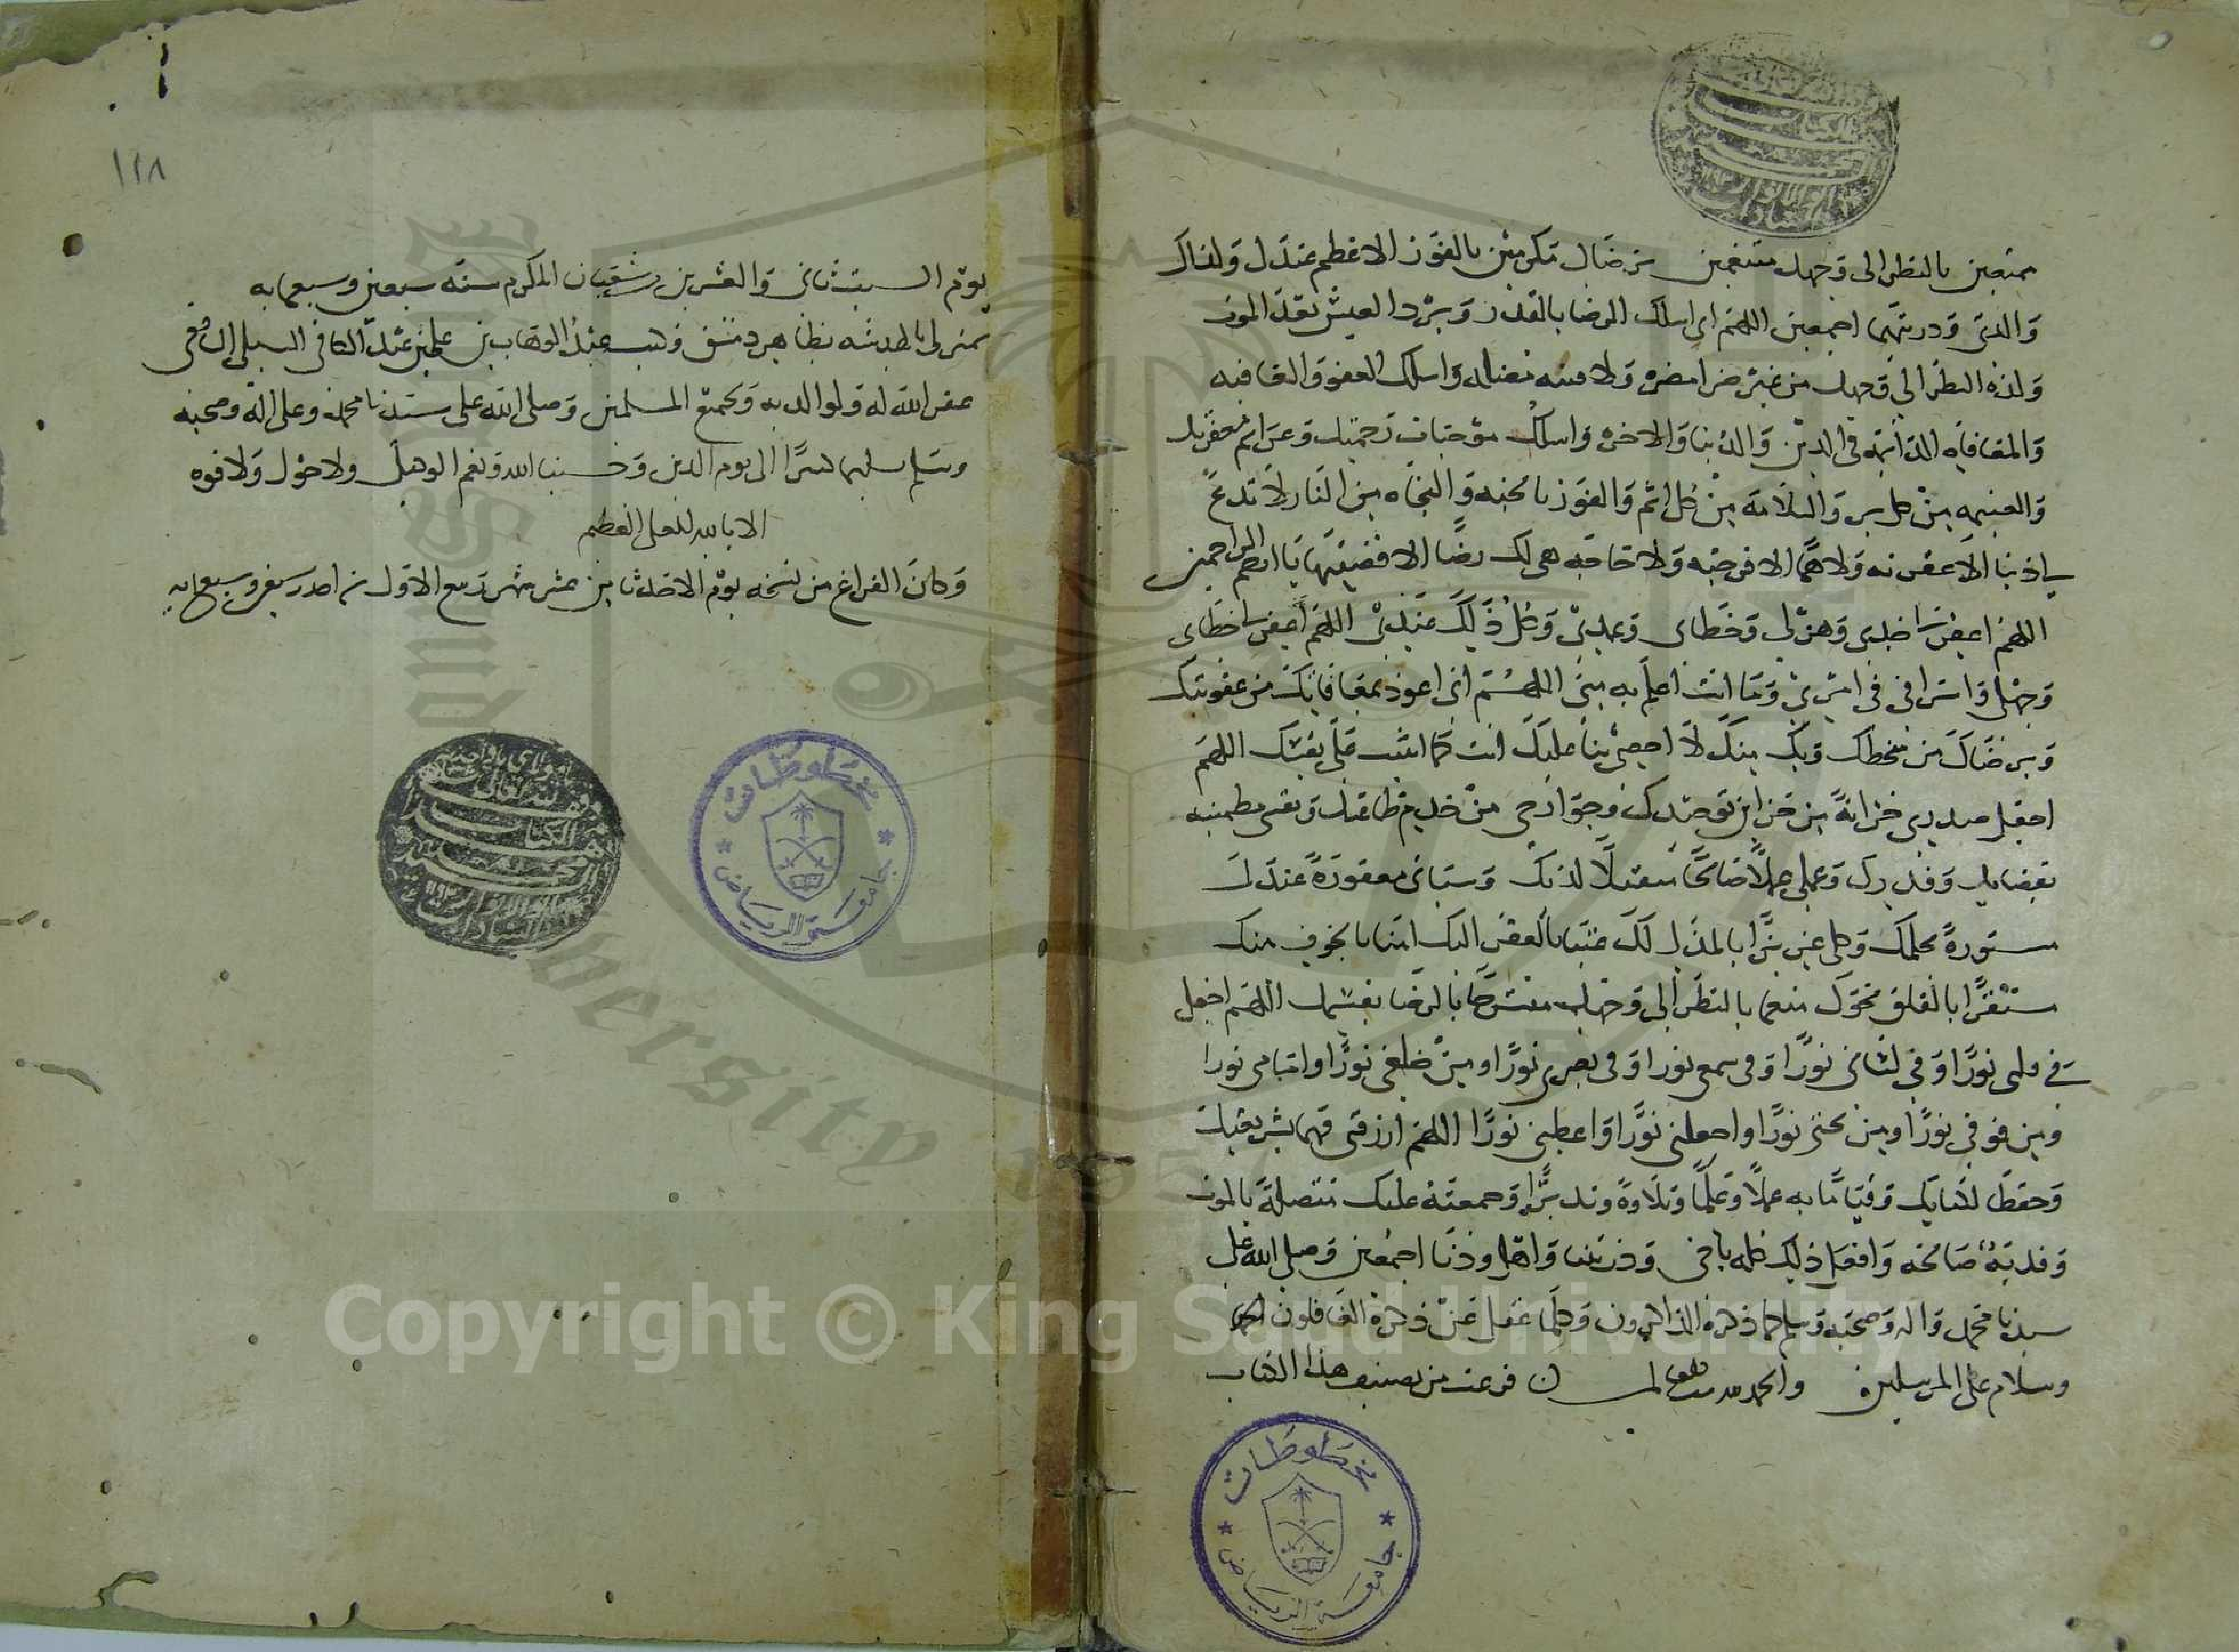 ممتعين بالنظر الى وجهك متنعمين برضاك مكرمين بالفوز الاعظم عندك ولذاك
والدي وذريتهما اجمعين اللهم اني اسلك الرضا بالقدر وبرد العيش بعد الموت
ولذة النظر الى وجهك من غير ضرا مضرة ولا فتنه مضله واسلك العفو والعافيه
والمعافاه الدائمه في الدين والدنيا والاخرة واسلك موجبات رحمتك وعزائم مغفرتك
والغنيمه من كل بر والسلامة من كل اثم والفوز بالجنه والنجاه من النار لا تدع
لي ذنبا الا غفرته ولا هما الا فرجته ولا حاجه هي لك رضا الا قضيتها يا ارحم الراحمين
اللهم اغفر لي جدي وهزلي وخطاي وعمدي وكل ذلك عندي اللهم اغفر لي خطاي
وجهلي واسرافي في امري وما انت اعلم به مني اللهم اني اعوذ بمعافاتك من عقوبتك
وبرضاك من سخطك وبك منك لا احصي ثنا عليك انت كما اثنيت على نفسك اللهم
اجعل صدري خزانة من خزاين توحيدك وجوارحي من خدم طاعتك ونفسي مطمئنه
بقضايك وقدرك وعملي عملا صالحا متقبلا لديك وسياتي مغفورة عندك
مستورة بحلمك و بالذل لك غنيا بالفقر اليك امنا بالخوف منك
مستقرا بالقلق نحوك منعما بالنظر الى وجهك منشرحا بالرضا بقسمك اللهم اجعل
في قلبي نورا وفي لساني نورا وفي سمعي نورا وفي بصري نورا ومن خلفي نورا وامامي نورا
ومن فوقي نورا ومن تحتي نورا واجعلني نورا واعطني نورا اللهم ارزقني فهما بشريعتك
وحفظا لكتابك وقياما به عملا وعلما وتلاوة وتدبرا وجمعته عليك متصلة بالموت
صالحه وافعل ذلك كله باخي وذريتنا واهل ودنا اجمعين وصلى الله على
سيدنا محمد واله وصحبه وسلم كلما ذكره الذاكرون وكلما غفل عن ذكره الغافلون
وسلام على المرسلين والحمد لله فرغت من تصنيف هذا الكتاب
١٢٨
يوم السبت ثاني والعشرين شعبان المكرم سنة سبعين وسبعمايه
بمنزلي بظاهر دمشق وكتب عبد الوهاب بن علي بن عبد الكافي السبكي الشافعي
غفر الله له ولوالديه ولجميع المسلمين وصلى الله على سيدنا محمد وعلى اله وصحبه
وسلم تسليما كثيرا الى يوم الدين وحسبنا الله ونعم الوكيل ولا حول ولا قوه
الا بالله العلي العظيم
وكان الفراغ من نسخه يوم الاحد ثامن عشر شهر ربيع الاول وسبعمايه
مخطوطات
جامعة الرياض
مخطوطات
جامعة الرياض
Copyright © King Saud University